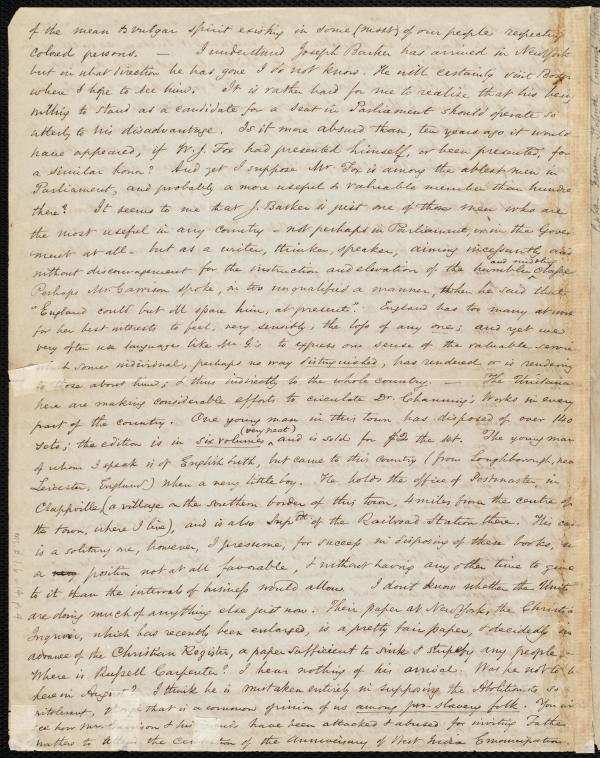 of the mean & vulgar spirit existing in some (most) of our people respecting
colored persons. — I understand Joseph Barker has arrived in New York
but in what direction he has gone I do not know. He will certainly visit Bos
where I hope to see him. It is rather hard for me to realize that his being
willing to stand as a candidate for a seat in Parliament should operate so
utterly to his disadvantage. Is it more absurd than, ten years ago it would
have appeared, if W. J. Fox had presented himself, or been presented, for
a similar honor? And yet I suppose Mr. Fox is among the ablest men in
Parliament, and probably a more useful & valuable member than hundre
there? It seems to me that J. Barker is just one of those men who are
the most useful in any country – not perhaps in Parliament, or in the Gover
ment at all – but as a writer, thinker, speaker, aiming incessantly, and
without discouragement for the instruction and elevation of the humbler and middling classe
Perhaps Mr Garrison spoke, in too unqualified a manner, when he said that
"England could but ill spare him, at present". England has too many at work
for her best interests to feel, very sensibly, the loss of any one; and yet we
very often use language like Mr. G's to express our sense of the valuable servic
which some individual, perhaps no way distinguished, has rendered or is rendering
to those about him, & thus indirectly to the whole country. — The Unitaria
here are making considerable efforts to circulate Dr. Channing's Works in every
part of the country. One young man in this town has disposed of over 140
sets; the edition is in six volumes (very neat) and is sold for $2 the set. The young man
of whom I speak is of English birth, but came to this country (from Loughborough, near
Leicester, England) when a very little boy. He holds the office of Postmaster in
Clappville (a village on the southern border of this town, 4 miles from the centre of
the town, where I live), and is also Supt. of the Railroad Station there. His case
is a solitary one, however, I presume, for success in disposing of these books, in
a position not at all favorable, & without having any other time to give
to it than the intervals of business would allow. I dont know whether the Unit
are doing much of anything else just now. Their paper at New York, the Christia
Inquirer, which has recently been enlarged, is a pretty fair paper, & decidedly in
advance of the Christian Register, a paper sufficient to sink & stupefy any people.
Where is Russell Carpenter? I hear nothing of his arrival. Was he not to b
here in August? I think he is mistaken entirely in supposing the Abolitionists so
intolerant, that is a common opinion of us among pro-slavery folk. You
see how Mr. Garrison & his have been attacked & abused for inviting Father
Matthew to the celebration of the anniversary of West India Emancipation